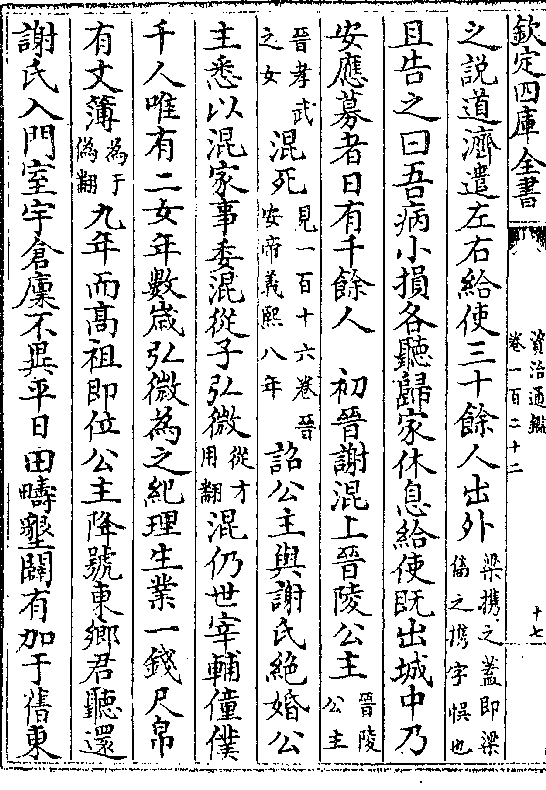 欽定四庫全書
資治通鑑
卷一百二十二
十七
之說道濟遣左右給使三十餘人出外梁攜之蓋即梁儁之攜字悞也
且告之曰吾病小損各聽歸家休息給使既出城中乃
安應募者日有千餘人　初晉謝混上晉陵公主晉陵公主
晉孝武之女混死見一百十六卷晉安帝義熙八年詔公主與謝氏絶婚公
主悉以混家事委混從子弘微從才用翻混仍世宰輔僮僕
千人唯有二女年數歲弘微為之紀理生業一錢尺帛
有文簿為于偽翻九年而髙祖即位公主降號東鄉君聽還
謝氏入門室宇倉廪不異平日田疇墾闢有加于舊東